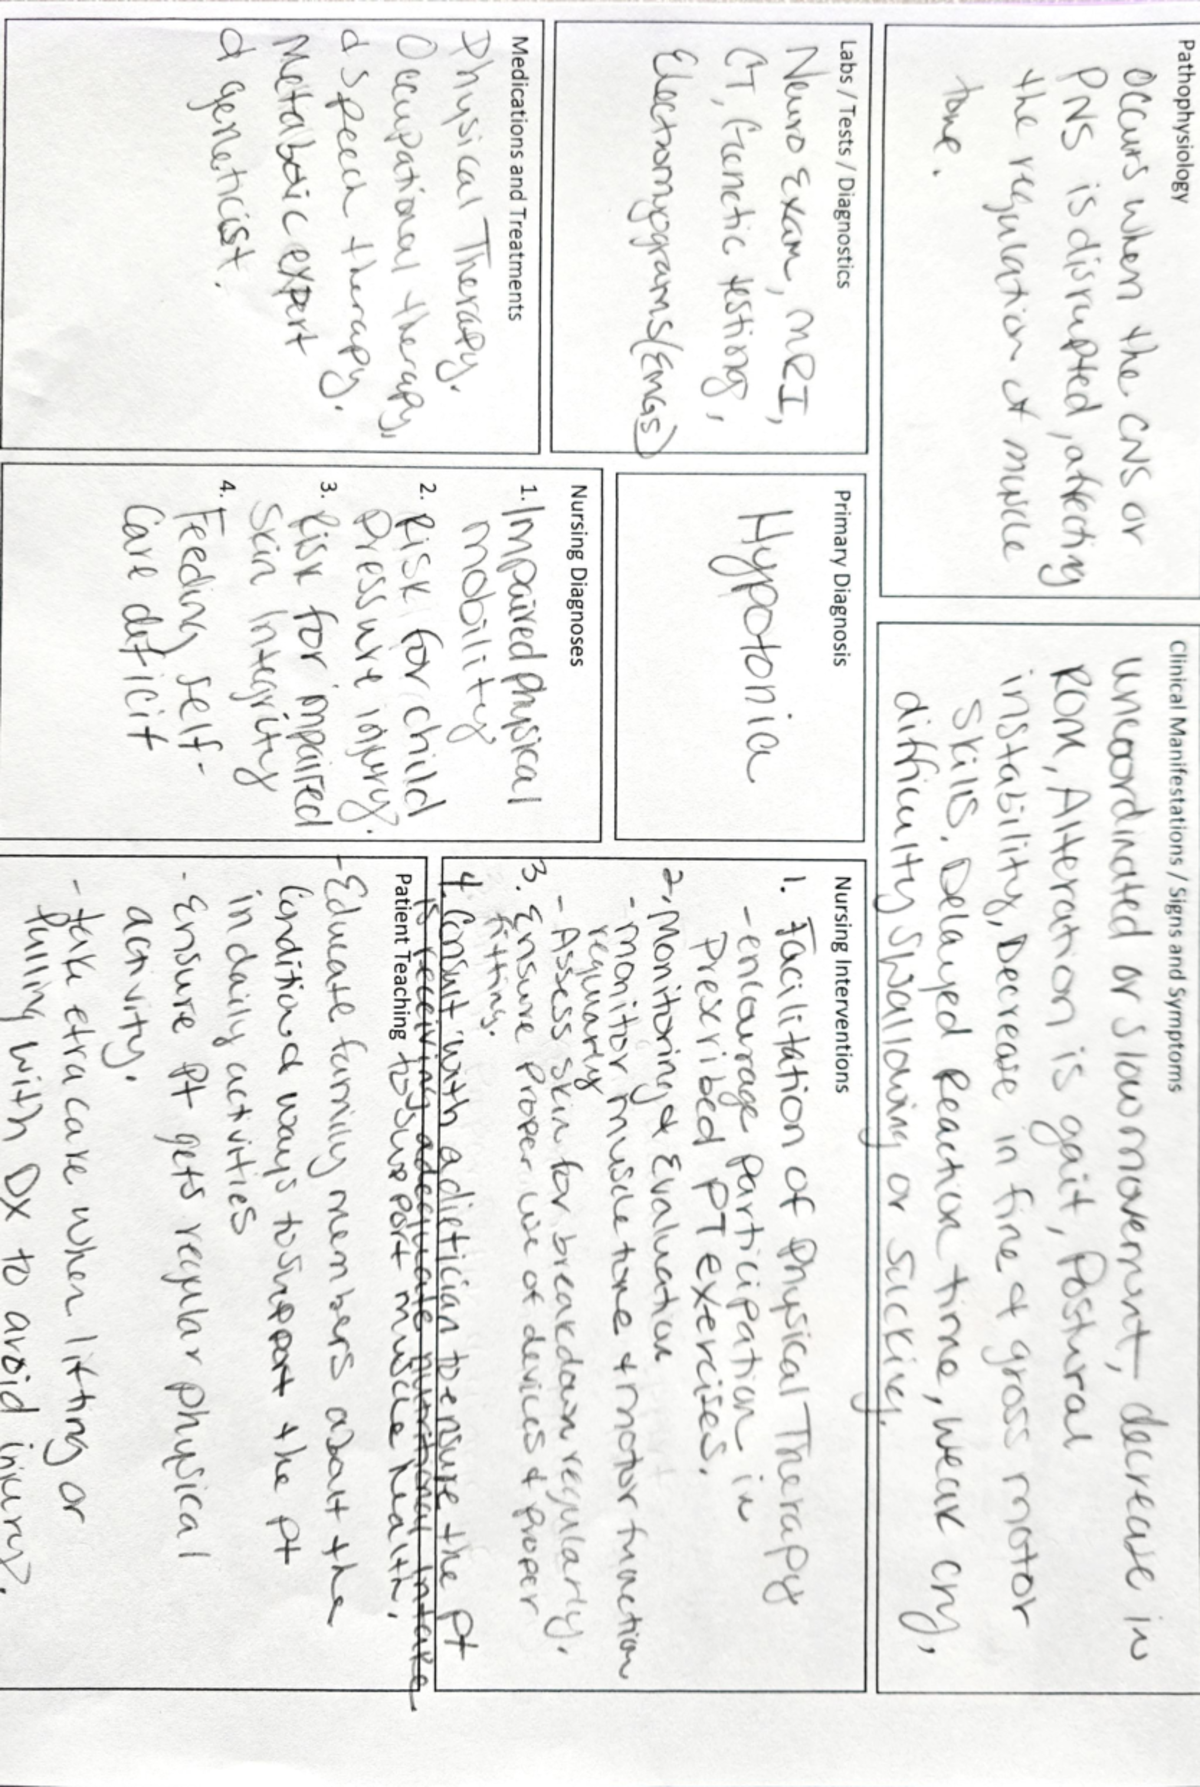 Pathophysiology
Occurs when the CNS or
PNS is disrupted, affecting
the regulation of muscle
tone.
Clinical Manifestations / Signs and Symptoms
Uncoordinated or slow movement, decrease in
ROM, Alteration is gait, Postural
instability, Decrease in fine & gross motor
Skills. Delayed Reaction time, weak cry,
difficulty swallowing or sucking.
Labs / Tests / Diagnostics
Neuro Exam, MRI,
CT, Genetic testing,
Electromyograms (EMGs)
Primary Diagnosis
Hypotonia
Nursing Interventions
1. Facilitation of Physical Therapy
- encourage participation in
prescribed PT exercises.
2. Monitoring & Evaluation
- monitor muscle tone & motor function
regularly
- Assess skin for breakdown regularly.
3. Ensure proper use of devices & proper
fitting.
4. Consult with a dietician to ensure the pt
is receiving adequate nutritional intake
to support muscle health.
Medications and Treatments
Physical Therapy.
Occupational therapy,
& Speech therapy.
Metabolic expert
& geneticist.
Nursing Diagnoses
1. Impaired physical
mobility
2. Risk for child
Pressure injury.
3. Risk for impaired
Skin Integrity
4. Feeding self-
Care deficit
Patient Teaching
- Educate family members about the
Condition & ways to support the pt
in daily activities
- Ensure Pt gets regular physical
activity.
- take etra care when lifting or
pulling with Dx to avoid injury.